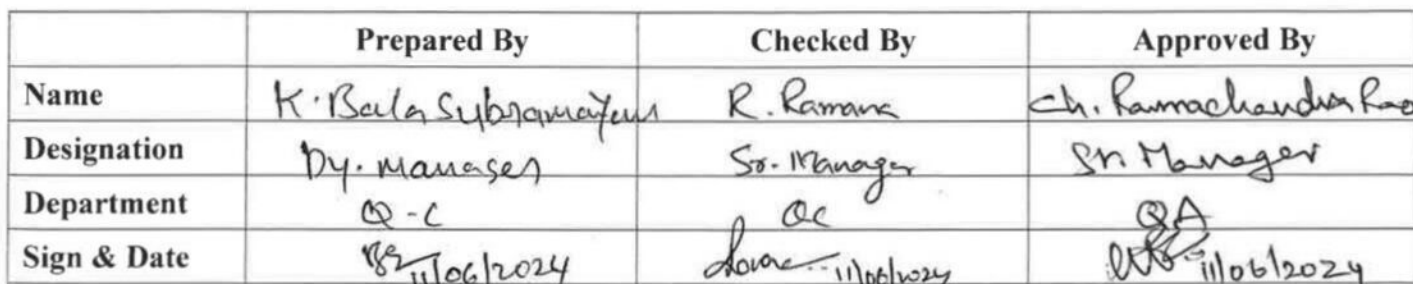 Prepared By Checked By Approved By
Name K. Bala Subramayam R. Ramana Ch. Ramachandra Rao
Designation Dy. Manager Sr. Manager Sr. Manager
Department Q-C QC QA
Sign & Date 11/06/2024 11/06/2024 11/06/2024